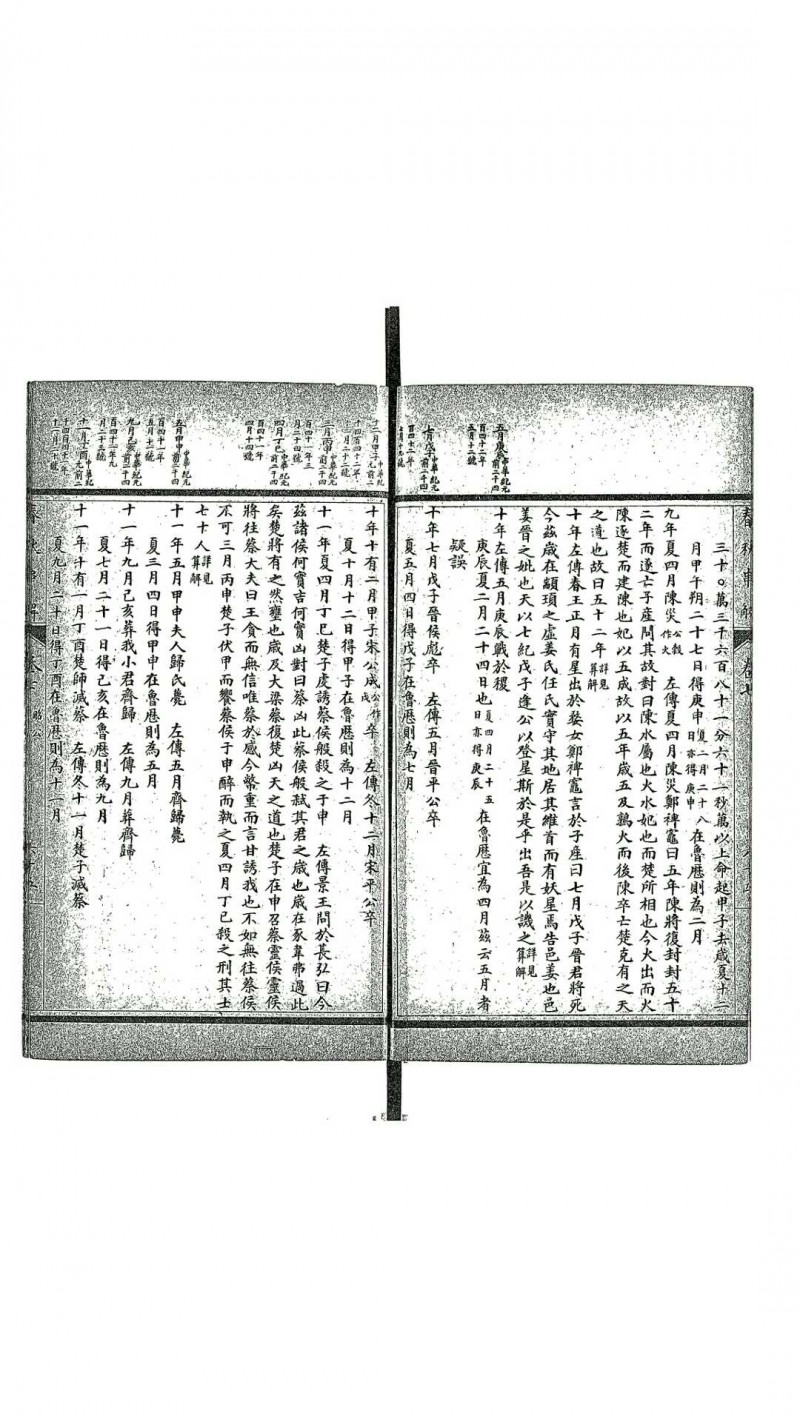 三十〇萬三千六百八十一分六十一秒萬以上命起甲子去歲夏十二
月甲午朔二十七日得庚申夏二月二十八日亦得庚申在魯歷則為二月
九年夏四月陳災公穀作火　左傳夏四月陳災鄭裨竈曰五年陳將復封封五十
二年而遂亡子產問其故對曰陳水屬也火水妃也而楚所相也今火出而火
陳逐楚而建陳也妃以五成故以五年歲五及鶉火而後陳卒亡楚克有之天
之道也故曰五十二年詳見算解
十年左傳春王正月有星出於婺女鄭裨竈言於子產曰七月戊子晉君將死
今茲歲在顓頊之虛姜氏任氏實守其地居其維首而有妖星焉告邑姜也邑
姜晉之妣也天以七紀戊子逢公以登星斯於是乎出吾是以譏之詳見算解
十年左傳五月庚辰戰於稷
庚辰夏二月二十四日也夏四月二十五日亦得庚辰在魯歷宜為四月茲云五月者
疑誤
十年七月戊子晉侯彪卒　左傳五月晉平公卒
夏五月四日得戊子在魯歷則為七月
五月庚辰中華紀元前二千四百四十二年五月十二號
七月戊子中華紀元前二千四百四十二年
十年十有二月甲子宋公成公作戌卒　左傳冬十二月宋平公卒
夏十月十二日得甲子在魯歷則為十二月
十一年夏四月丁巳楚子虔誘蔡侯般殺之于申　左傳景王問於萇弘曰今
茲諸侯何實吉何實凶對曰蔡凶此蔡侯般弒其君之歲也歲在豕韋弗過此
矣楚將有之然壅也歲及大梁蔡復楚凶天之道也楚子在申召蔡靈侯靈侯
將往蔡大夫曰王貪而無信唯蔡於感今幣重而言甘誘我也不如無往蔡侯
不可三月丙申楚子伏甲而饗蔡侯于申醉而執之夏四月丁巳殺之刑其士
七十人詳見算解
十一年五月甲申夫人歸氏薨　左傳五月齊歸薨
夏三月四日得甲申在魯歷則為五月
十一年九月己亥葬我小君齊歸　左傳九月葬齊歸
夏七月二十一日得己亥在魯歷則為九月
十一年十有一月丁酉楚師滅蔡　左傳冬十一月楚子滅蔡
夏九月二十日得丁酉在魯歷則為十一月
四月丁巳中華紀元前二千四百四十一年四月十四號
五月甲申中華紀元前二千四百四十一年五月十一號